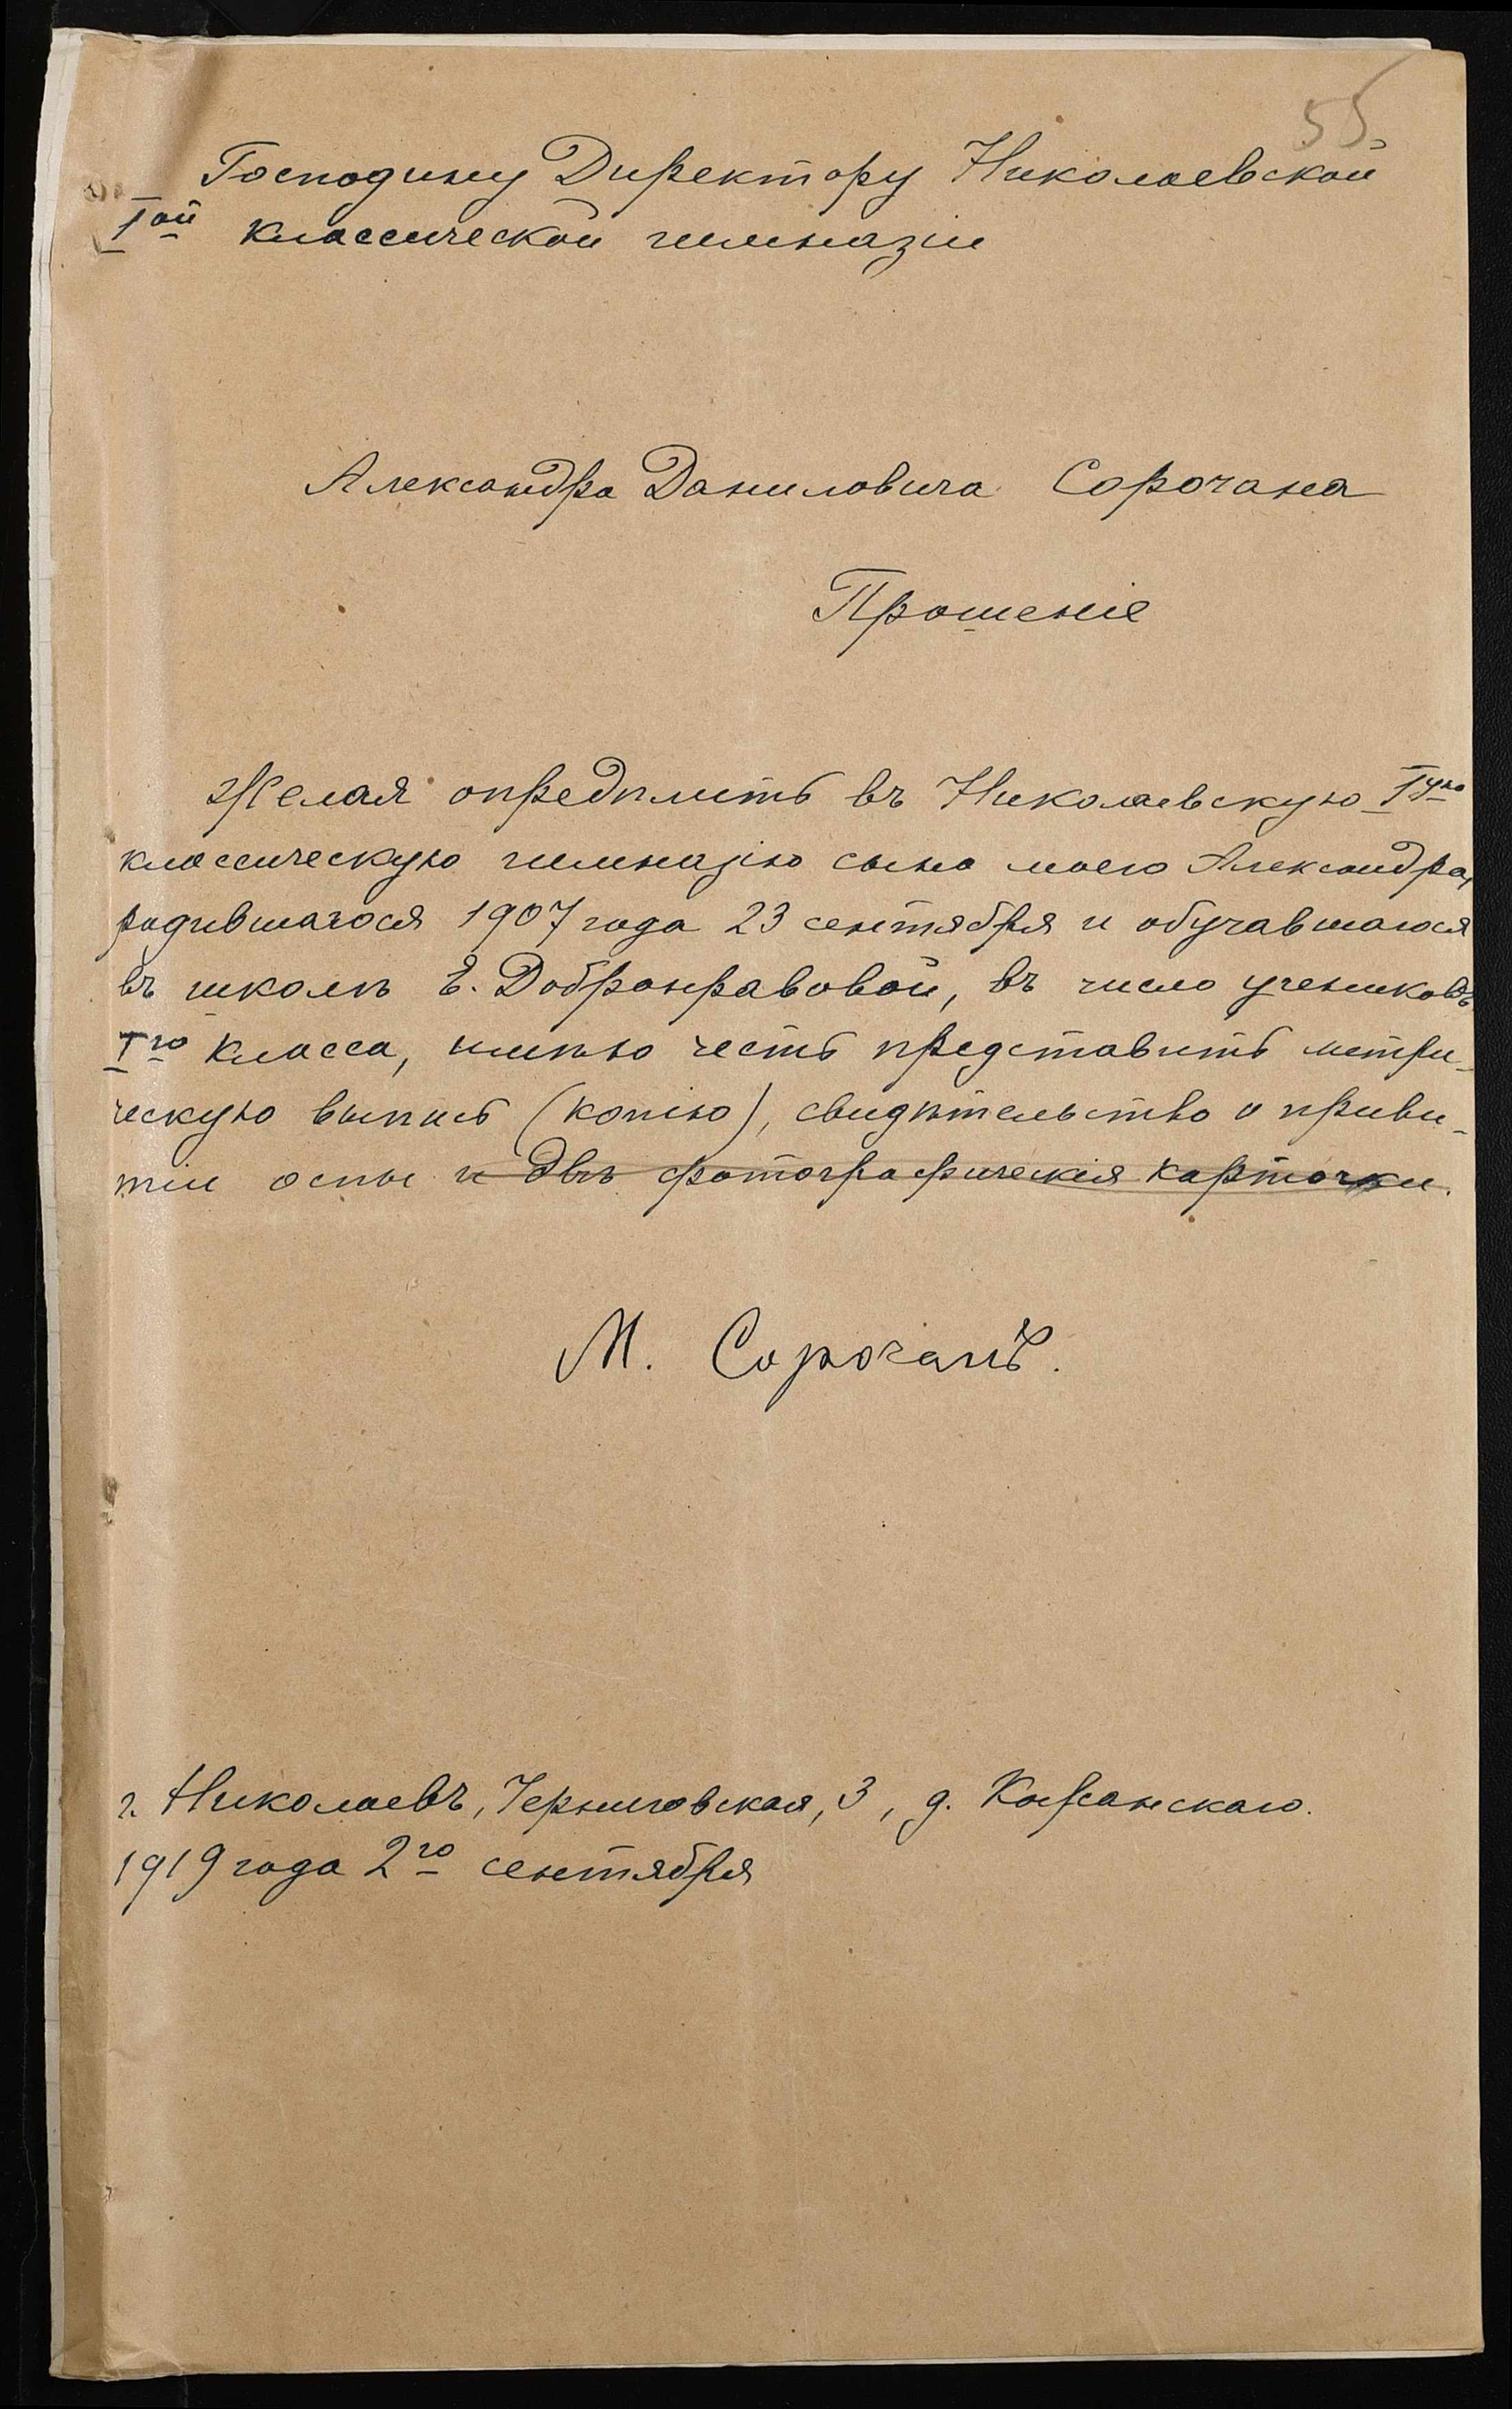 55
Господину Директору Николаевской
Iой классической гимназіи
Александра Даниловича Сорочана
Прошеніе
Желая опредѣлить въ Николаевскую Iую
классическую гимназію сына моего Александра,
родившагося 1907 года 23 сентября и обучавшагося
въ школѣ Е. Добронравовой, въ число учениковъ
Iго класса, имѣю честь представить метри-
ческую выпись (копію), свидѣтельство о приви-
тіи оспы и двѣ фотографическія карточки.
М. Сорочанъ.
г. Николаевъ, Черниговская, 3, д. Касанскаго.
1919 года 2го сентября